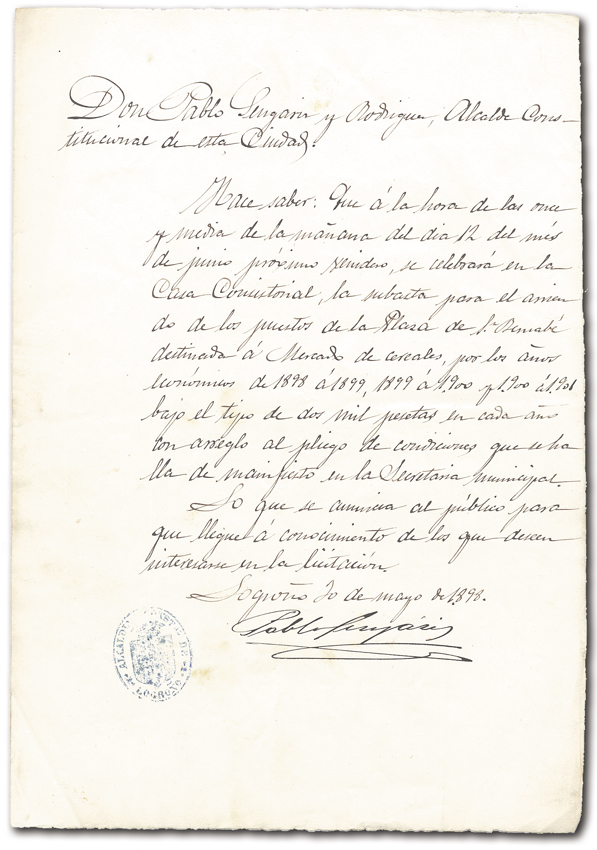 Don Pablo Sengariz y Rodriguez, Alcalde Cons-
titucional de esta Ciudad.
Hace saber: Que á la hora de las once
y media de la mañana del dia 12 del més
de junio próximo venidero, se celebrará en la
Casa Consistorial, la subasta para el arrien
do de los puestos de la Plaza de Sn. Bernabé
destinada á Mercado de cereales, por los años
económicos de 1898 á 1899, 1899 á 1900 y 1900 á 1901
bajo el tipo de dos mil pesetas en cada año
con arreglo al pliego de condiciones que se ha
lla de manifiesto en la Secretaria municipal.
Lo que se anuncia al público para
que llegue á conocimiento de los que deseen
interesarse en la licitación.
Logroño 30 de mayo de 1898.
Pablo Sengáriz
ALCALDIA CONSTAL. DE
LOGROÑO